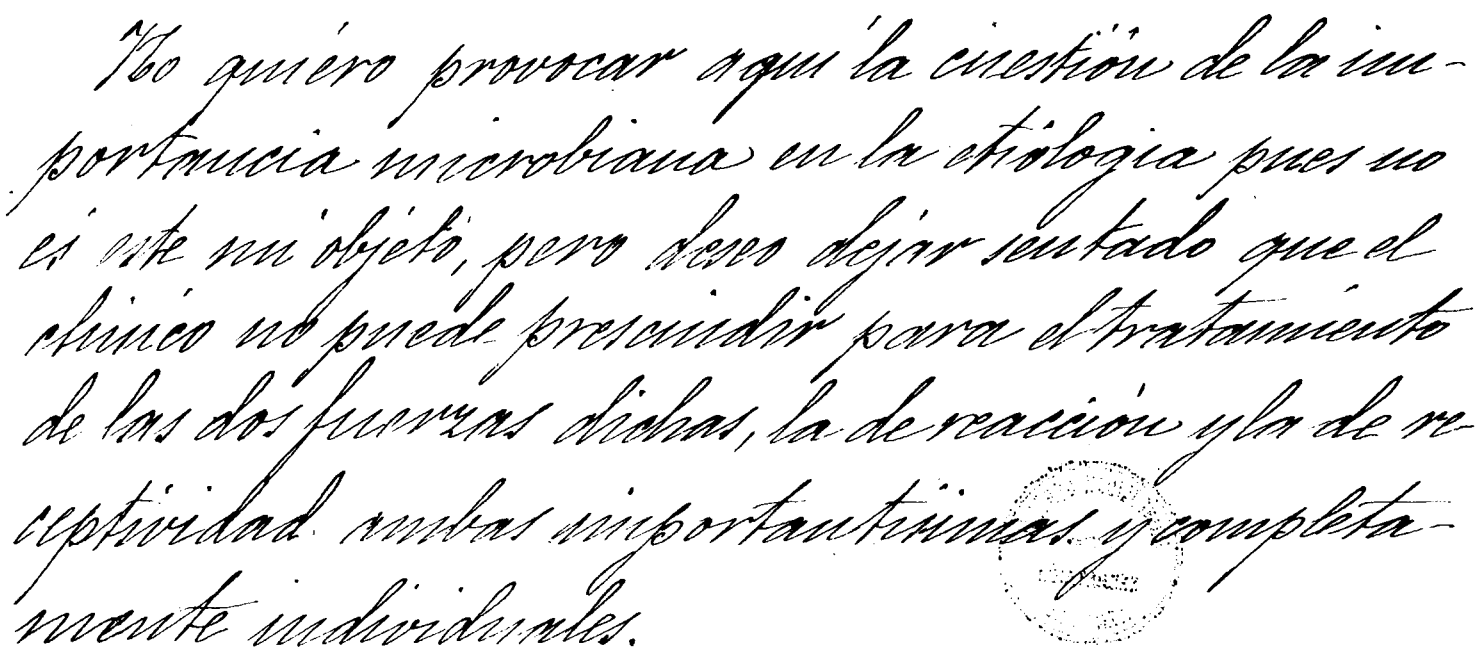 No quiero provocar aquí la cuestión de la im-
portancia microbiana en la etiologia pues no
es este mi objeto, pero deseo dejar sentado que el
clinico no puede prescindir para el tratamiento
de las dos fuerzas dichas, la de reacción y la de re-
ceptividad ambas importantísimas y completa-
mente individuales.